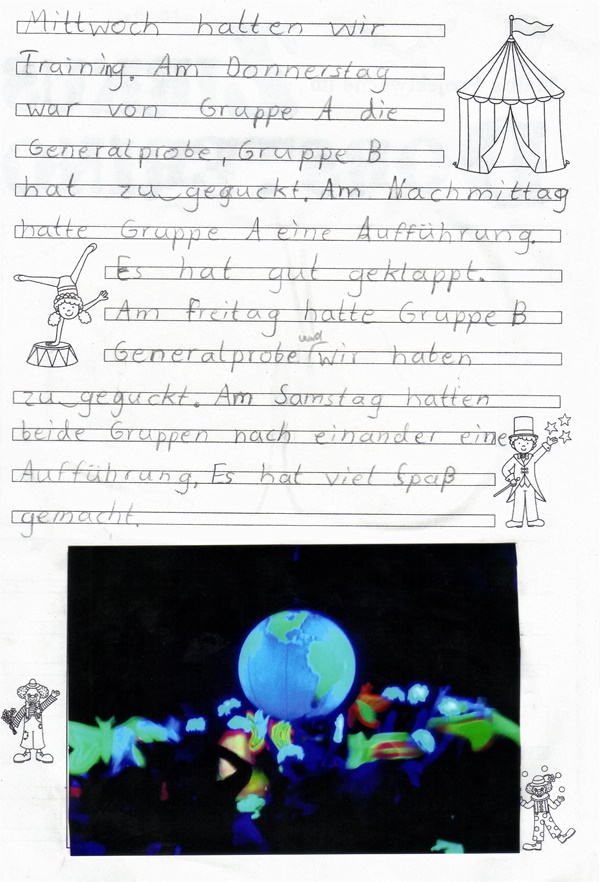 Mittwoch hatten wir
Training. Am Donnerstag
war von Gruppe A die
Generalprobe, Gruppe B
hat zu geguckt. Am Nachmittag
hatte Gruppe A eine Aufführung.
Es hat gut geklappt.
Am Freitag hatte Gruppe B
Generalprobe und wir haben
zu geguckt. Am Samstag hatten
beide Gruppen nach einander eine
Aufführung. Es hat viel Spaß
gemacht.